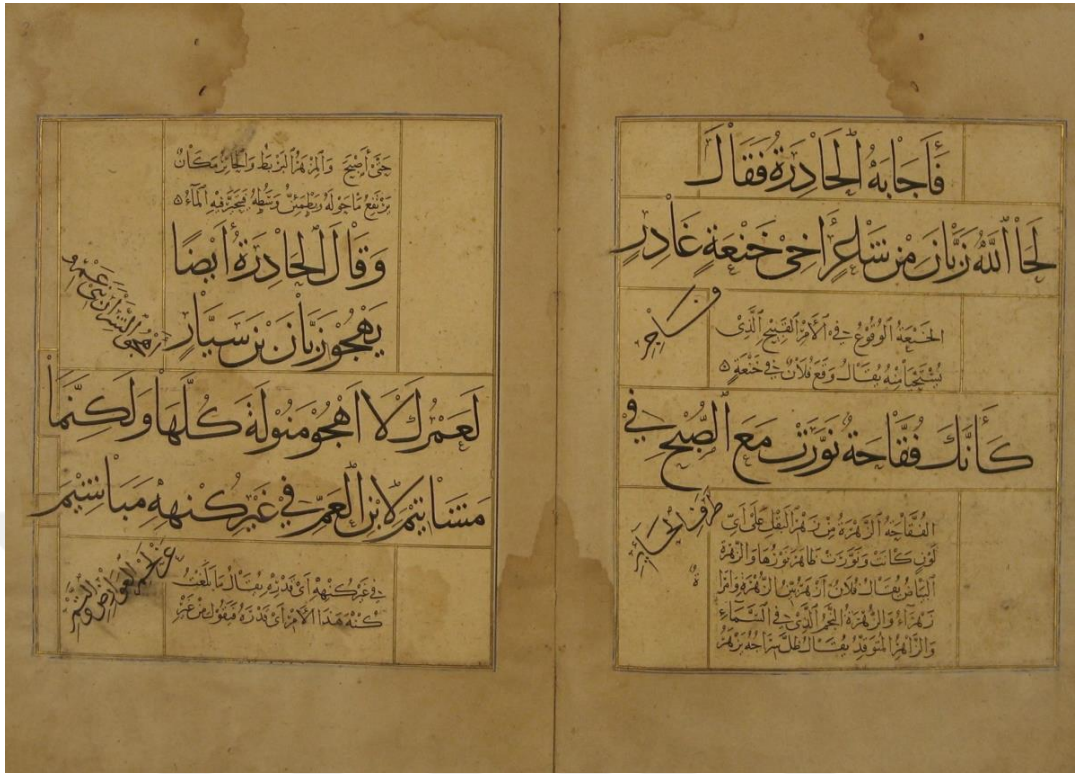 فَأَجَابَهُ الْحَادِرَةُ فَقَالَ
لَحَا اللَّهُ زَبَّانَ مِنْ شَاعِرٍ أَخِي خَنْعَةٍ غَادِرٍ
فَاجِرِ
الخَنعَةُ الوُقُوعُ فِي الأَمْرِ القَبِيحِ الَّذِي
يُسْتَحْيَا مِنْهُ يُقَالُ وَقَعَ فُلَانٌ فِي خَنْعَةٍ ۵
كَأَنَّكَ فُقَّاحَةٌ نَوَّرَتْ مَعَ الصُّبْحِ فِي
طَرَفِ الْحَائِرِ
الفُقَّاحَةُ الزَّهْرَةُ مِنْ زَهْرِ البَقْلِ عَلَى أَيِّ
لَوْنٍ كَانَتْ وَنَوَّرَتْ نَوْرُهَا وَالزُّهْرَةُ
البَيَاضُ يُقَالُ فُلَانٌ أَزْهَرُ بَيِّنُ الزُّهْرَةِ وَامْرَأَةٌ
زَهْرَاءُ وَالزُّهَرَةُ النَّجْمُ الَّذِي فِي السَّمَاءِ
وَالزَّاهِرُ المُتَوَقِّدُ يُقَالُ ظَلَّ سِرَاجُهُ يَزْهَرُ
حَتَّى أَصْبَحَ وَالمِزْهَرُ البَرْبَطُ وَالحَائِرُ مَكَانٌ
يَرْتَفِعُ مَا حَوْلَهُ وَيَطْمَئِنُّ وَسَطُهُ فَيَتَحَيَّرُ فِيهِ المَاءُ ۵
وَقَالَ الْحَادِرَةُ أَيْضًا
يَهْجُو زَبَّانَ بْنَ سَيَّارٍ
لَعَمْرُكَ لَا أَهْجُو مَنُولَةَ كُلَّهَا وَلَكِنَّمَا
أَهْجُو اللِّئَامَ بَنِي عَمْرِو
مَشَاتِيمُ لِابْنِ الْعَمِّ فِي غَيْرِ كُنْهِهِ مَبَاشِيمُ
عَنْ لَحْمِ الْعَوَارِضِ وَالتَّمْرِ
فِي غَيْرِ كُنْهِهِ أَيْ قَدْرِهِ يُقَالُ مَا بَلَغْتُ
كُنْهَ هَذَا الأَمْرِ أَيْ قَدْرَهُ فَيَقُولُ مِنْ غَيْرِ